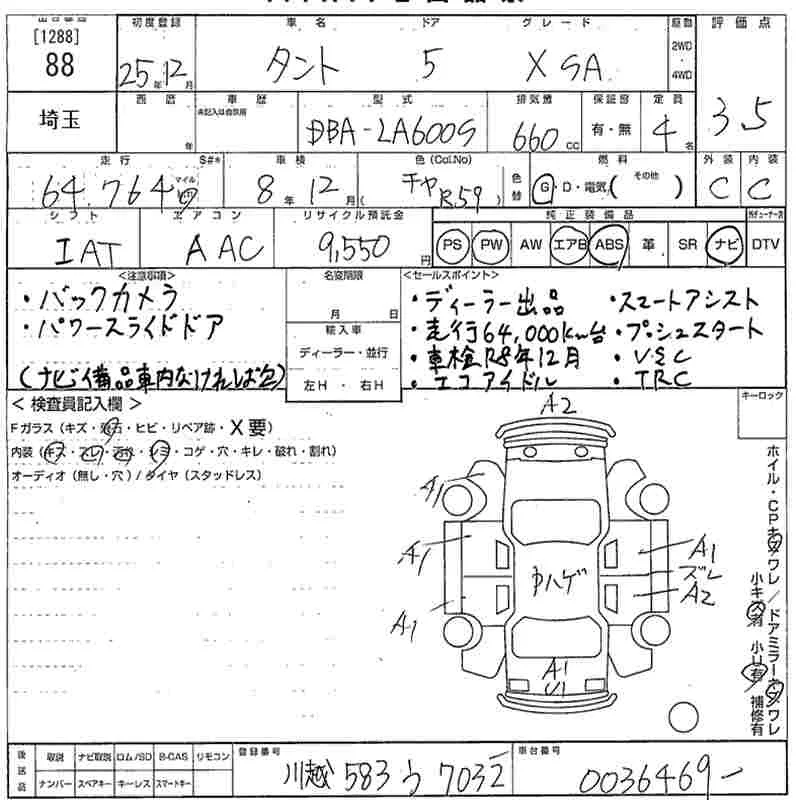 [1288]
88
初度登録
25年12月
車名
タント
ドア
5
グレード
X SA
駆動
2WD
4WD
評価点
3.5
埼玉
西暦
年
車歴
未記入は自家用
型式
DBA-LA600S
排気量
660cc
保証書
有・無
定員
4名
走行
64,764
マイル
S#*
車検
8年12月
色(Col.No)
チャ R59
色替
燃料
G・D・電気( その他 )
外装
C
内装
C
シフト
IAT
エアコン
AAC
リサイクル預託金
9,550円
純正装備品
PS PW AW エアB ABS 革 SR ナビ DTV
<注意事項>
・バックカメラ
・パワースライドドア
(ナビ備品車内なければ欠)
名変期限
月 日
輸入車
ディーラー・並行
左H・右H
<セールスポイント>
・ディーラー出品 ・スマートアシスト
・走行64,000km台 ・プッシュスタート
・車検R8年12月 ・VSC
・エコアイドル ・TRC
<検査員記入欄>
Fガラス(キズ・飛石・ヒビ・リペア跡・X要)
内装(キズ・スレ・汚れ・シミ・コゲ・穴・キレ・破れ・割れ)
オーディオ(無し・穴)/タイヤ(スタッドレス)
キーロック
A2
A1
A1
A1
A1
ズレ
A2
中ハゲ
A1
U1
ホイル・CPキズワレ/ドアミラーキズワレ
小キズ有 小U有 補修有
後送品
取説 ナビ取説 ロム/SD B-CAS リモコン
ナンバー スペアキー キーレス スマートキー
登録番号
川越 583 う 7032
車台番号
0036469